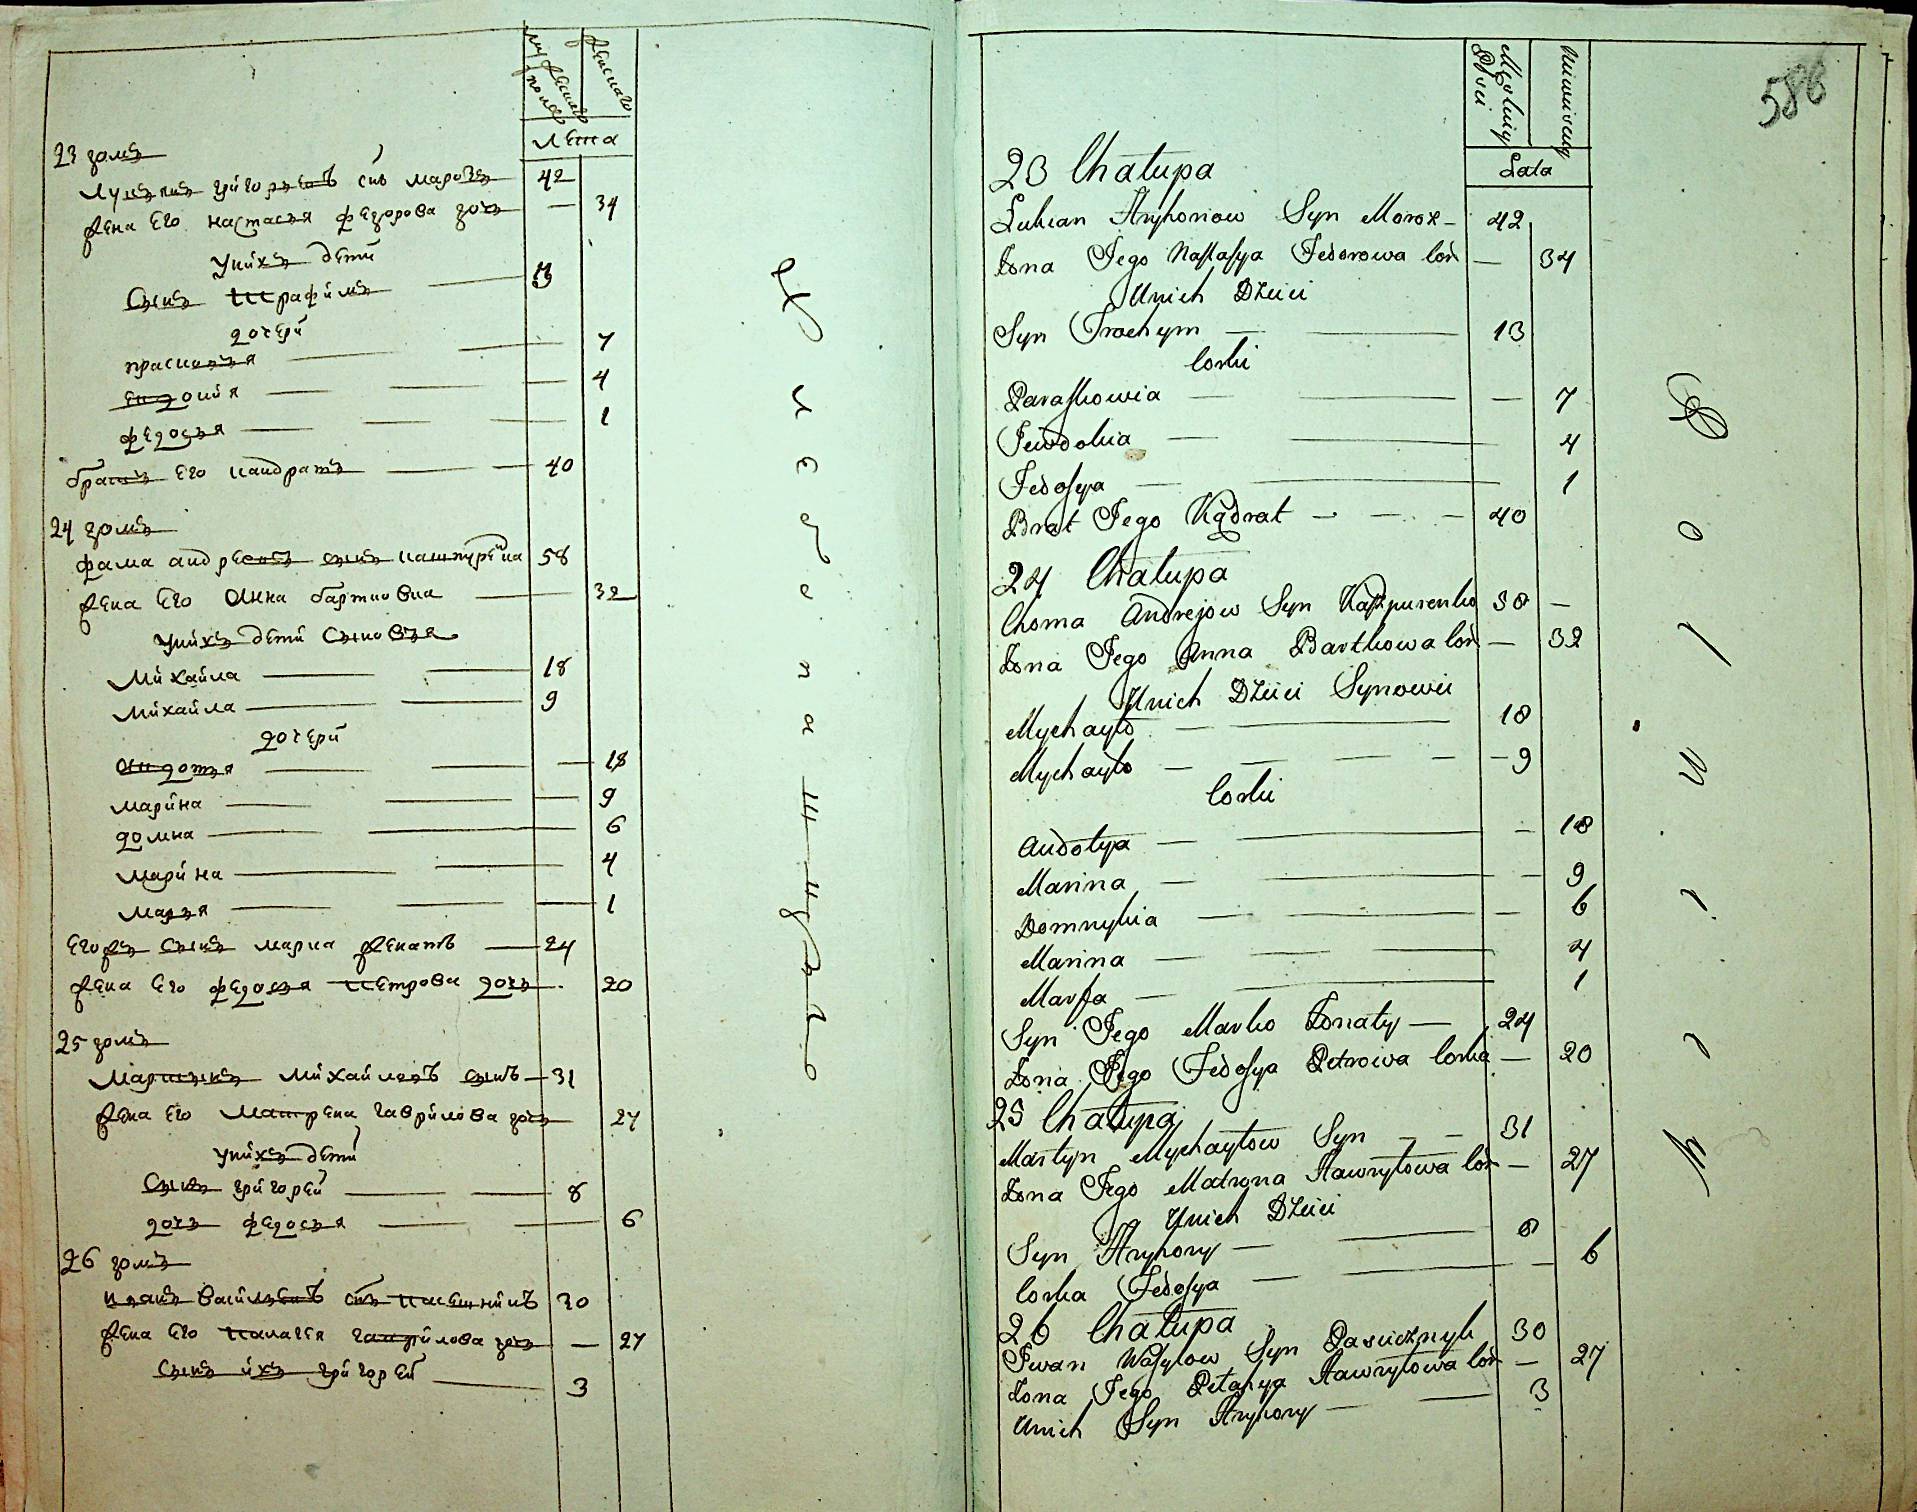 мужеска полу
женскаго
лета
23 домъ
Лукьянъ григорьевъ снъ марозъ 42
жена его настасья федорова дочь — 34
у нихъ дети
Сынъ Трафимъ — 13
дочери
прасковья — 7
евдокия — 4
федосья — 1
братъ его кандратъ — 40
24 домъ
фама андреевъ сынъ 58
жена его Анна бартковна — 32
у нихъ дети Сыновья
Михайла — 18
Михайла — 9
дочери
Авдотья — 18
марина — 9
домна — 6
марина — 4
марья — 1
его сынъ марка женатъ — 24
жена его федосья Петрова дочь 20
25 домъ
Мартынъ Михайловъ сынъ — 31
жена его Матрена гаврилова дочь 27
у нихъ дети
Сынъ григорей — 8
дочь федосья — 6
26 домъ
иванъ василевъ снъ пасешникъ 30
жена его Палагея гаврилова дочь — 27
Сынъ ихъ григорей — 3
586
Męskiey Płci
Niewieściey
Lata
23 Chałupa
Lukian Hryhoriow Syn Moroz — 42
Żona Jego Nastasya Fedorowa cór — 34
U nich Dzieci
Syn Trochym — 13
Corki
Paraskowia — 7
Jewdokia — 4
Fedosya — 1
Brat Jego Kądrat — 40
24 Chałupa
Choma Andrejow Syn 58 —
Żona Jego Anna Bartkowa cór — 32
U nich Dzieci Synowie
Mychayło — 18
Mychayło — 9
Corki
Audotya — 18
Marina — 9
Domnykia — 6
Marina — 4
Marya — 1
Syn Jego Marko Żonaty — 24
Żona Jego Fedosya Petrowa Corka — 20
25 Chałupa
Martyn Mychayłow Syn — 31
Żona Jego Matrona Hawryłowa cór — 27
U nich Dzieci
Syn Hryhory — 8
Corka Fedosya — 6
26 Chałupa
Iwan Wasylow Syn Pasicznyk 30
Żona Jego Pelahya Hawryłowa cór — 27
U nich Syn Hryhory — 3